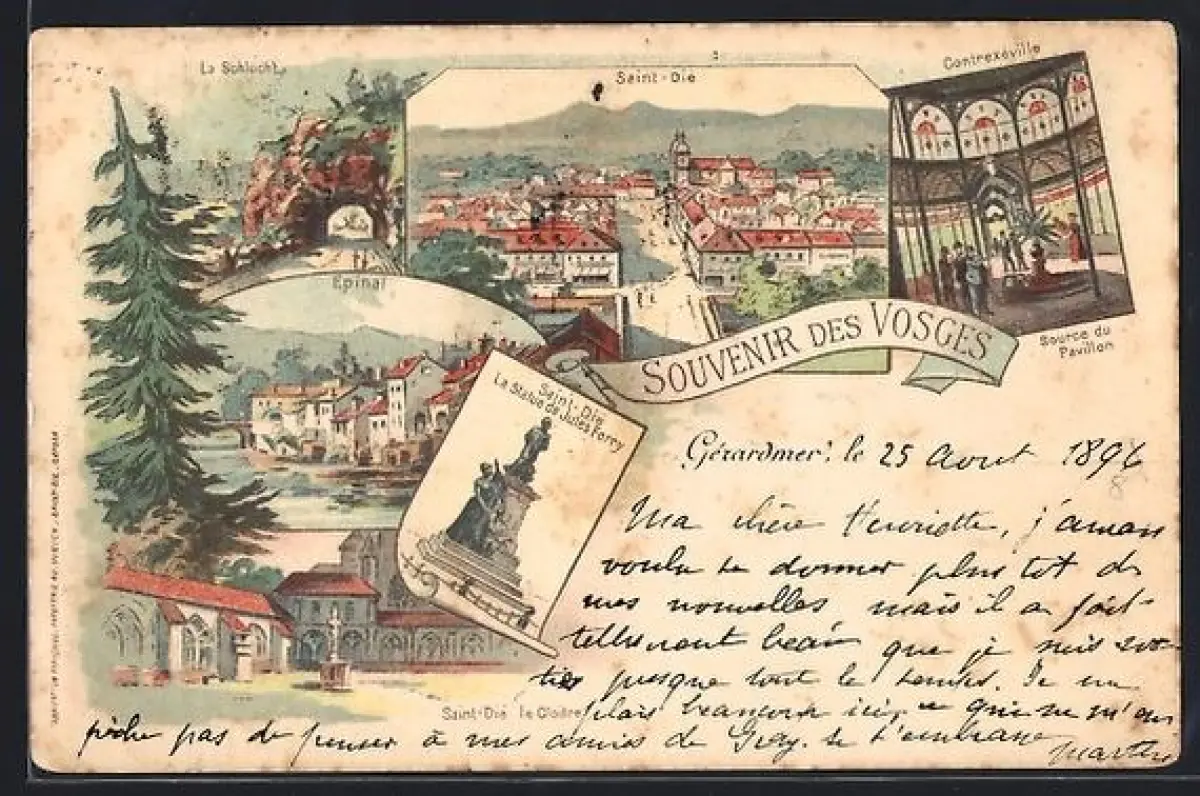 La Schlucht
Saint-Dié
Contrexéville
Epinal
Source du
Pavillon
SOUVENIR DES VOSGES
Saint-Die
La Statue de Jules Ferry
Gérardmer, le 25 Aout 1896
8
Ma chère Henriette, j'aurais
voulu te donner plus tôt de
mes nouvelles mais il a fait
tellement beau que je suis sor-
tie presque tout le temps. Je me
plais beaucoup ici, ce qui ne m'em
pêche pas de penser à mes amies de Gray. Je t'embrasse
Saint-Dié le Cloître